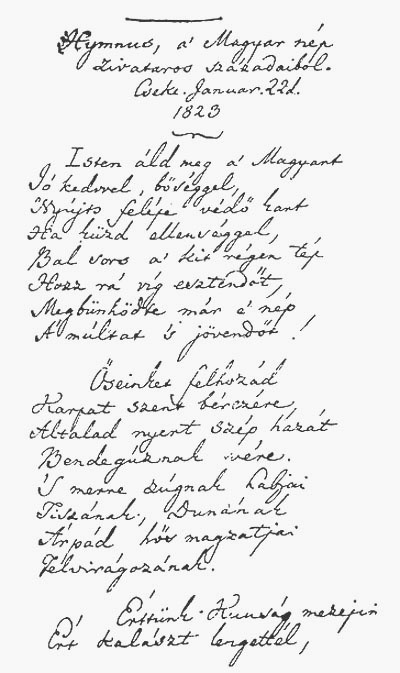 Hymnus, a' Magyar nép
zivataros századaiból.
Cseke. Januar. 22d.
1823
Isten áld meg a' Magyart
Jó kedvvel, bőséggel,
Nyújts feléje védő kart
Ha küzd ellenséggel,
Bal sors a' kit régen tép
Hozz rá víg esztendőt,
Megbűnhödte már e' nép
A' múltat 's jövendőt!
Őseinket felhozád
Karpat szent bérczére,
Általad nyert szép hazát
Bendegúznak vére.
'S merre zúgnak habjai
Tiszának, Dunának
Árpád hős magzatjai
Felvirágozának.
Értünk Kunság mezejin
Ért kalászt lengettél,